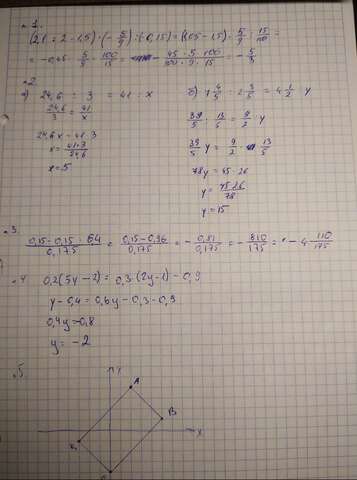 №1.
(2,1 : 2 - 1,5) · (- 5/9) : (-0,15) = (1,05 - 1,5) · 5/9 : 15/100 =
= -0,45 · 5/9 · 100/15 = - 45 · 5 · 100 / 100 · 9 · 15 = - 5/3
№2
а) 24,6 : 3 = 41 : x
24,6/3 = 41/x
24,6x = 41 · 3
x = 41·3/24,6
x = 5
б) 7 4/5 : 2 3/5 = 4 1/2 : y
39/5 : 13/5 = 9/2 : y
39/5 y = 9/2 · 13/5
78y = 45 · 26
y = 45·26/78
y = 15
№3.
0,15 - 0,15 · 6,4 / 0,175 = 0,15 - 0,96 / 0,175 = - 0,81/0,175 = - 810/175 = - 4 110/175
№4 0,2(5y - 2) = 0,3(2y - 1) - 0,9
y - 0,4 = 0,6y - 0,3 - 0,9
0,4y = -0,8
y = -2
№5
Y
A
B
X
K
C